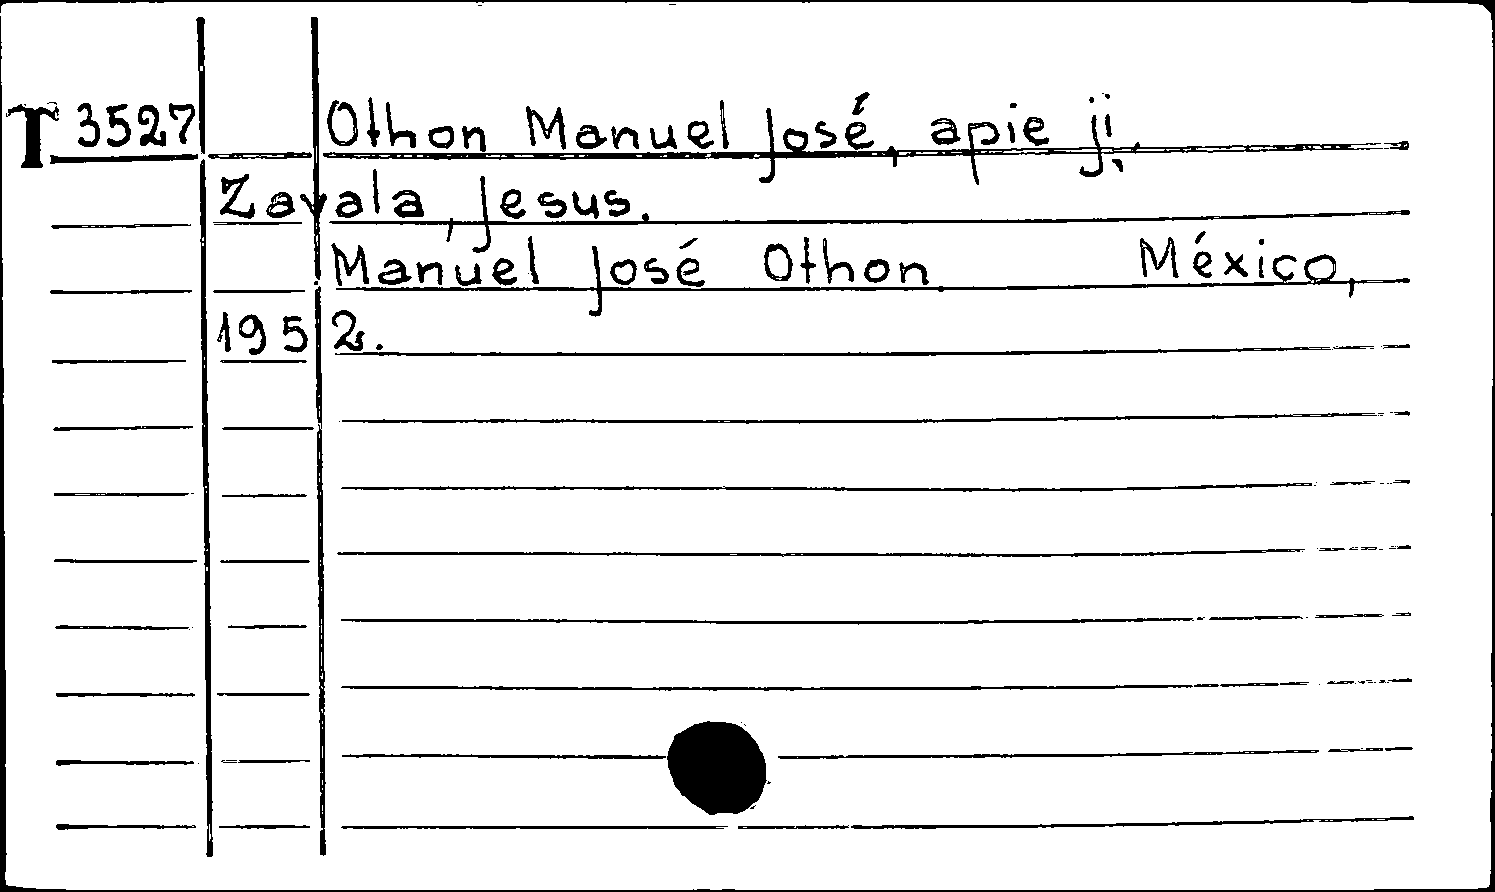 T 3527 Othon Manuel José, apie jį.
Zavala, Jesus.
Manuel José Othon. México,
1952.